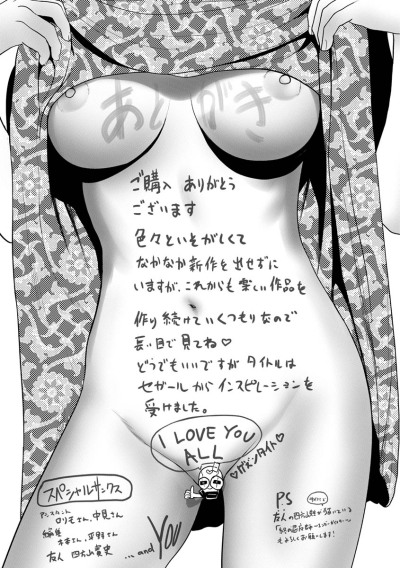 あとがき
ご購入 ありがとう
ございます
色々といそがしくて
なかなか新作を出せずに
いますが、これからも楽しい作品を
作り続けていくつもりなので
長い目で見てね♡
どうでもいいですがタイトルは
セガールからインスピレーションを
受けました。
I LOVE YOU
ALL
スペシャルサンクス
アシスタント
ロリモさん、中見さん
編集
友人
...and YOU
PS
友人の
よろしくお願いします!